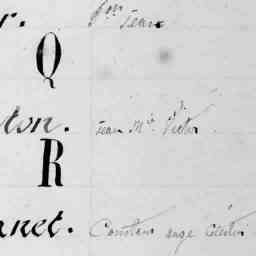 r. fm Jean
Q
ton. Jean M.ie Victor
R
anet. Constant ange Célestin